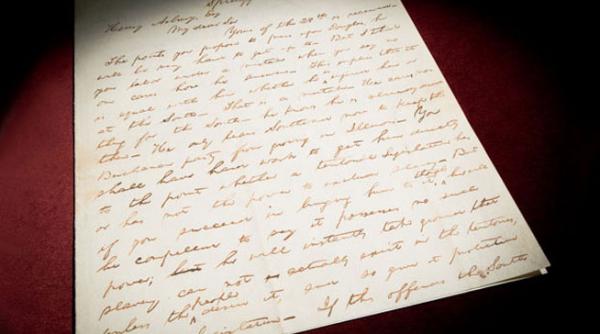 Spring
Henry Asbury, Esq
My dear Sir Yours of the 28th is received.
The points you propose to press upon Douglas, he
will be very hard to get up to. But I think
you labor under a mistake when you say no
one cares how he answers. This implies that it
is equal with him whether he is injured here or
at the South. That is a mistake. He cares no-
thing for the South – he knows he is already dead
there. He only leans Southward now to keep the
Buchanan party from growing in Illinois. You
shall have hard work to get him directly
to the point whether a territorial Legislature has
or has not the power to exclude slavery. But
if you succeed in bringing him to it, though he will
be compelled to say it possesses no such
power; but he will instantly take ground that
slavery can not actually exist in the territories,
unless the people desire it and so give it protective
legislation. If this offends the South